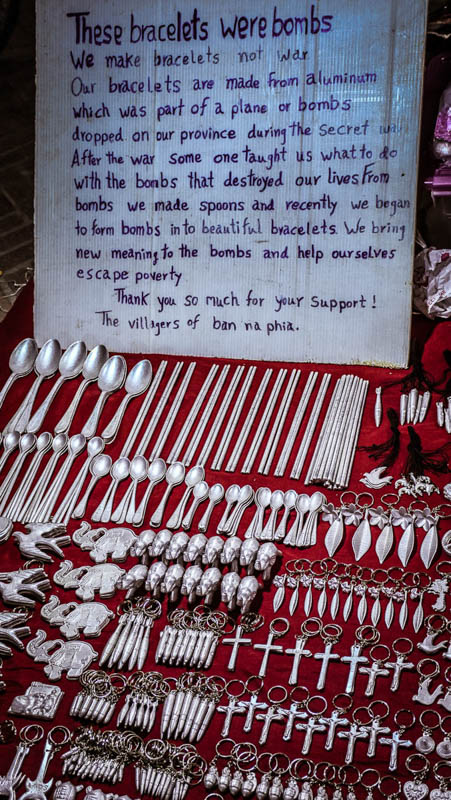 These bracelets were bombs
We make bracelets not war
Our bracelets are made from aluminum
which was part of a plane or bombs
dropped on our province during the secret war
After the war some one taught us what to do
with the bombs that destroyed our lives From
bombs we made spoons and recently we began
to form bombs in to beautiful bracelets. We bring
new meaning to the bombs and help ourselves
escape poverty
Thank you so much for your support!
The villagers of ban na phia.